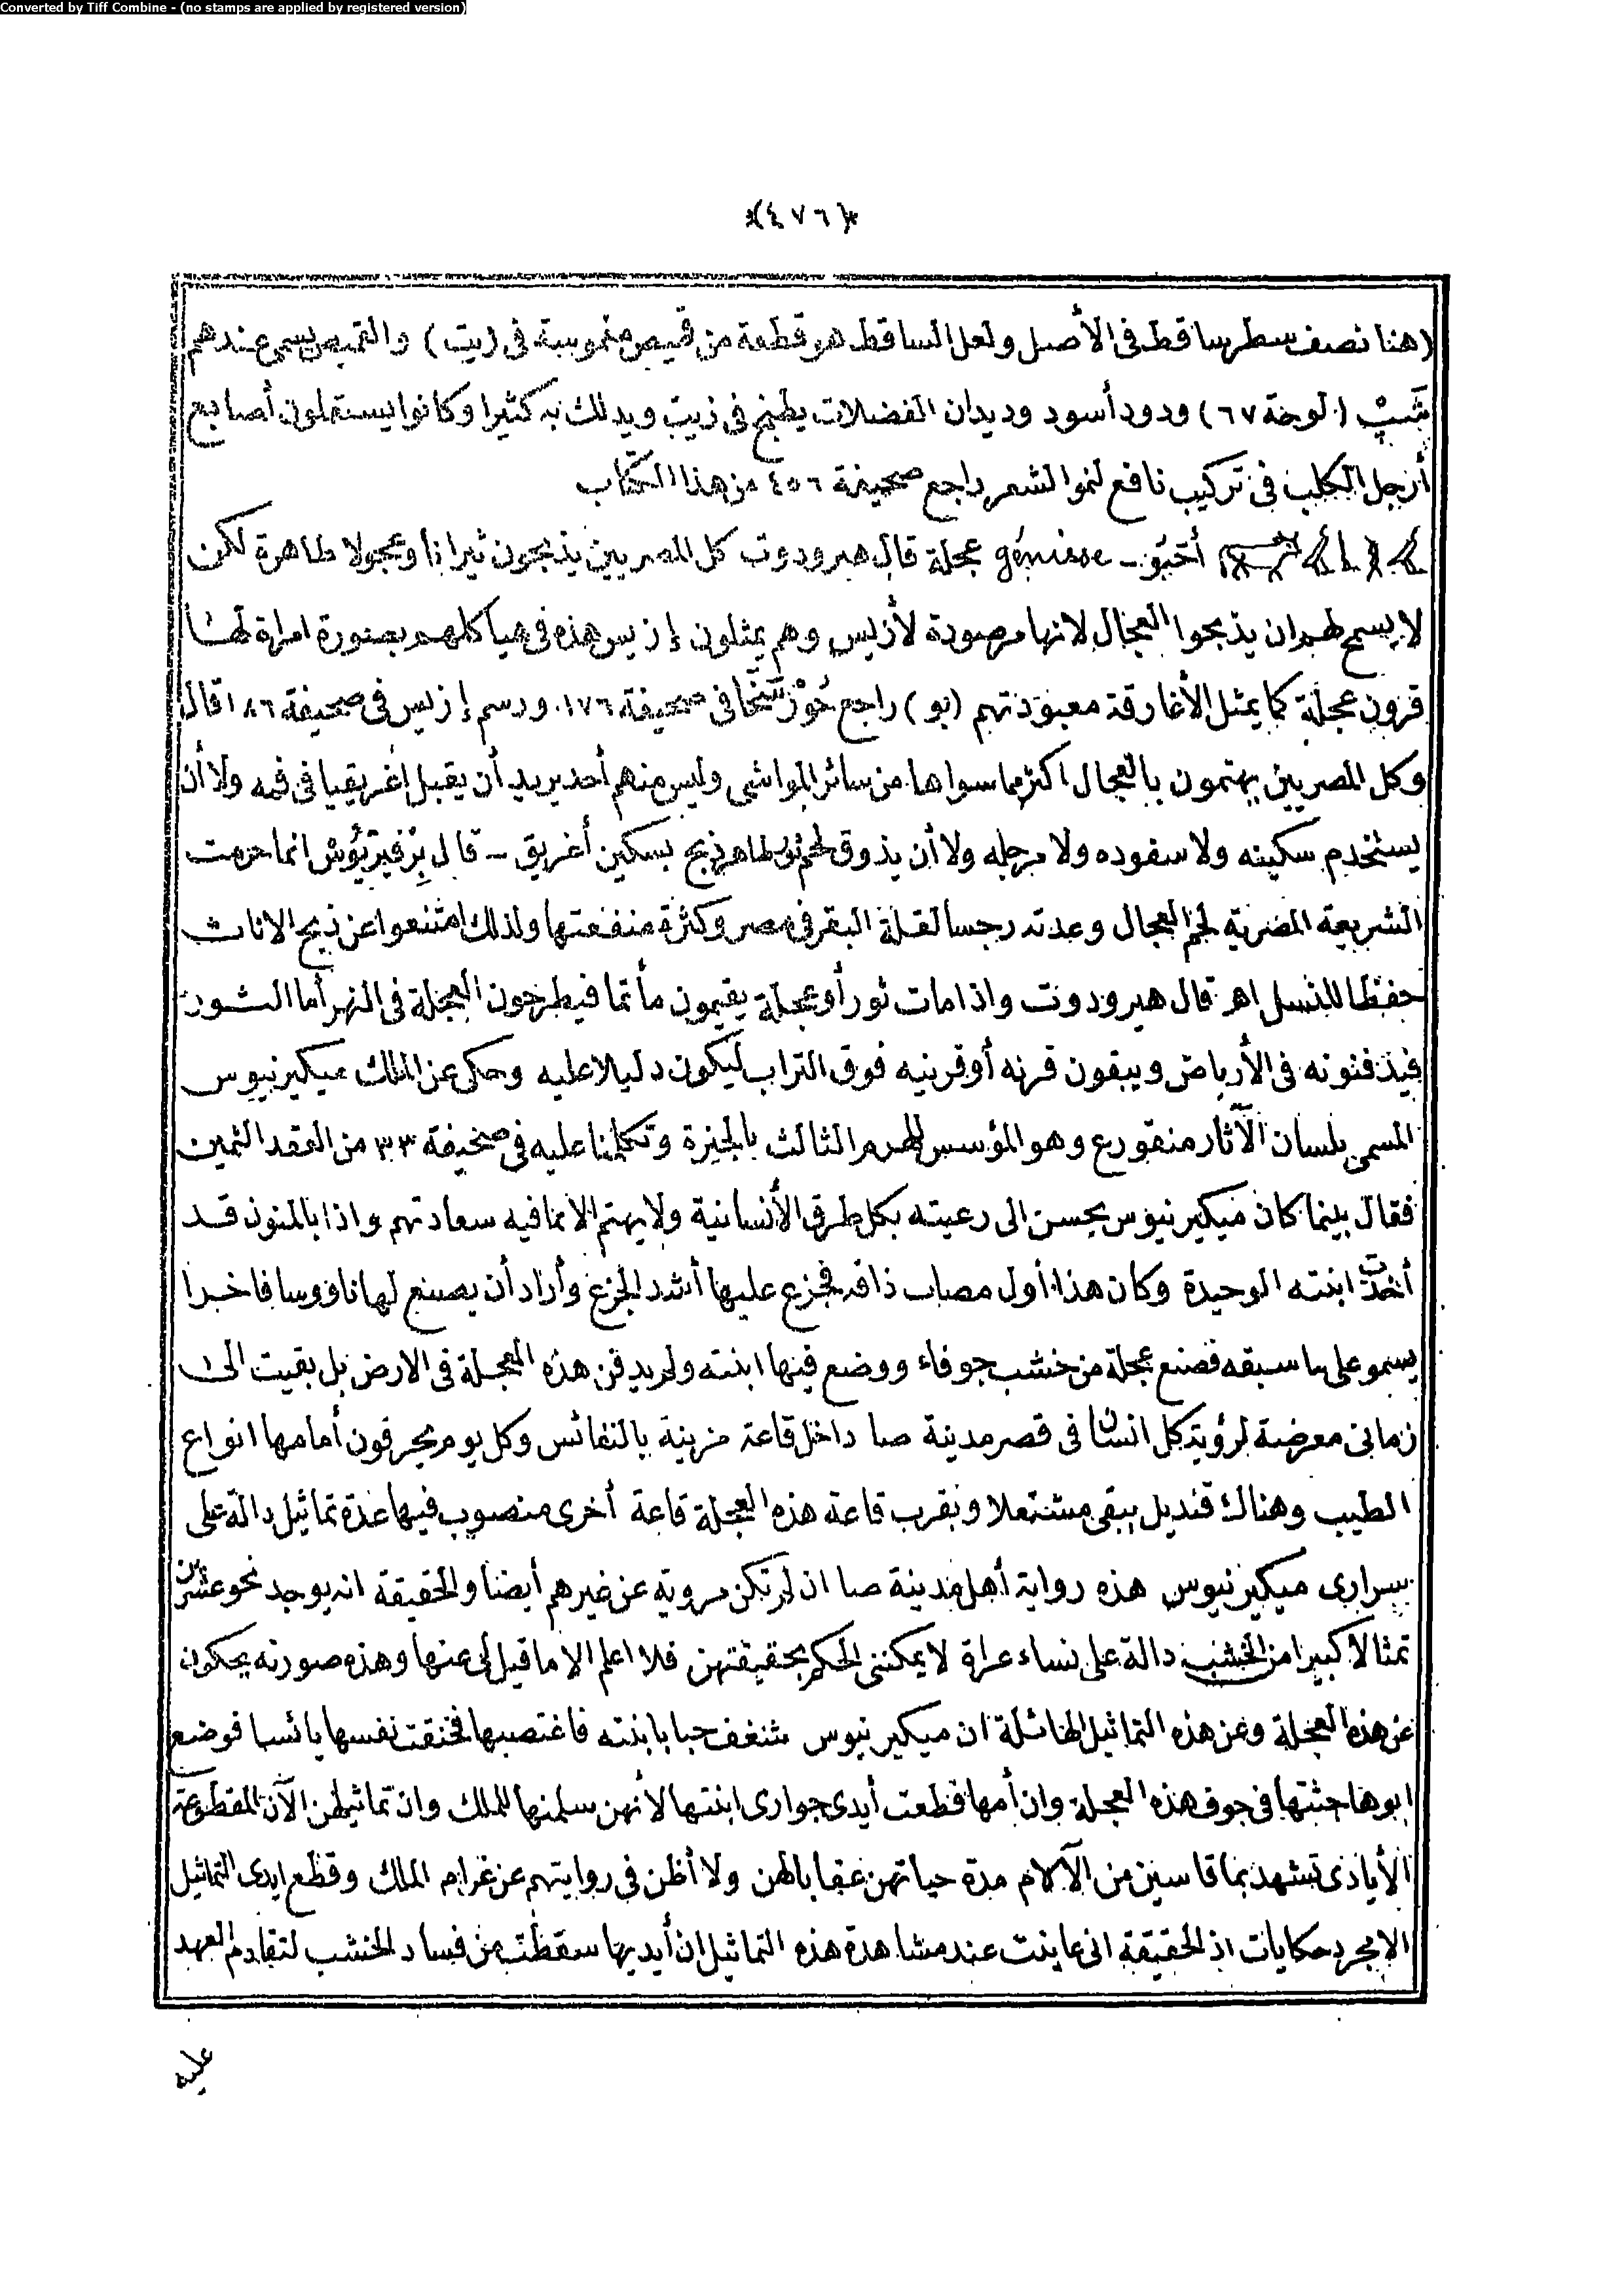 Converted by Tiff Combine - (no stamps are applied by registered version)
*(٤٧٦)*
(هنا نصف سطر ساقط فى الأصل ولعل الساقط هو قطعة من قميص مغموسة فى زيت) والقميص يسمى عندهم
(لوحة ٦٧) ودود أسود وديدان الفضلات يطبخ فى زيت ويدلك به كثيرا وكانوا يستعملون أصابع
أرجل الكلب فى تركيب نافع لنمو الشعر راجع صحيفة ٤٥٦ من هذا الكتاب
génisse عجلة قال هيرودوت كل المصريين يذبحون ثيرانا وعجولا طاهرة لكن
لا يسمح لهم ان يذبحوا العجال لانها مرصودة لأزيس وهم يمثلون إزيس هذه فى هياكلهم بصورة امرأة لها
قرون عجلة كما يمثل الأغارقة معبودتهم (يو) راجع فى صحيفة ١٧٦ ورسم إزيس فى صحيفة ١٨٦ قال
وكل المصريين يهتمون بالعجال اكثر مما سواها من سائر المواشى وليس منهم أحد يريد أن يقبل إغريقيا فى فمه ولا أن
يستخدم سكينه ولا سفوده ولا مرجله ولا أن يذوق لحم ثور طاهر ذبح بسكين أغريق - قال برفيريوش انما حرمت
الشريعة المصرية لحم العجال وعدته رجسا لقلة البقر فى مصر وكثرة منفعتها ولذلك امتنعوا عن ذبح الاناث
حفظا للنسل اهر قال هيرودوت واذا مات ثور أو عجلة يقيمون مأتما فيطرحون العجلة فى النهر أما الثور
فيدفنونه فى الأرباض ويبقون قرنه أو قرنيه فوق التراب ليكون دليلا عليه وحكى عن الملك ميكيرنيوس
المسمى بلسان الآثار منقورع وهو المؤسس للهرم الثالث بالجيزة وتكلمنا عليه فى صحيفة ٣٣ من العقد الثمين
فقال بينما كان ميكيرنيوس يحسن الى رعيته بكل طرق الأنسانية ولا يهتم الا بما فيه سعادتهم واذا بالمنون قد
أخذت ابنته الوحيدة وكان هذا أول مصاب ذاقه فجزع عليها أشد الجزع وأراد أن يصنع لها ناووسا فاخرا
يسمو على ما سبقه فصنع عجلة من خشب جوفاء ووضع فيها ابنته ولم يدفن هذه العجلة فى الارض بل بقيت الى
زمانى معرضة لرؤية كل انسان فى قصر مدينة صا داخل قاعة مزينة بالنفائس وكل يوم يحرقون أمامها انواع
الطيب وهناك قنديل يبقى مشتعلا وبقرب قاعة هذه العجلة قاعة أخرى منصوب فيها عدة تماثيل دالة على
سرارى ميكيرنيوس هذه رواية أهل مدينة صا ان لم تكن مروية عن غيرهم أيضا والحقيقة انه يوجد نحو عشرين
تمثالا كبيرا من الخشب دالة على نساء عراة لا يمكننى الحكم بحقيقتهن فلا اعلم الا ما قيل لى عنها وهذه صورته يحكون
عن هذه العجلة وعن هذه التماثيل الهائلة ان ميكيرنيوس شغف حبا بابنته فاغتصبها فخنقت نفسها يائسا فوضع
ابوها جثتها فى جوف هذه العجلة وان أمها قطعت أيدى جوارى ابنتها لأنهن سلمنها للملك وان تماثيلهن الآن المقطوعة
الأيادى تشهد بما قاسين من الآلام مدة حياتهن عقابا لهن ولا أظن فى روايتهم عن غرام الملك وقطع ايدى التماثيل
الا مجرد حكايات اذ الحقيقة انى عاينت عند مشاهدة هذه التماثيل ان أيديها سقطت من فساد الخشب لتقادم العهد
عليه